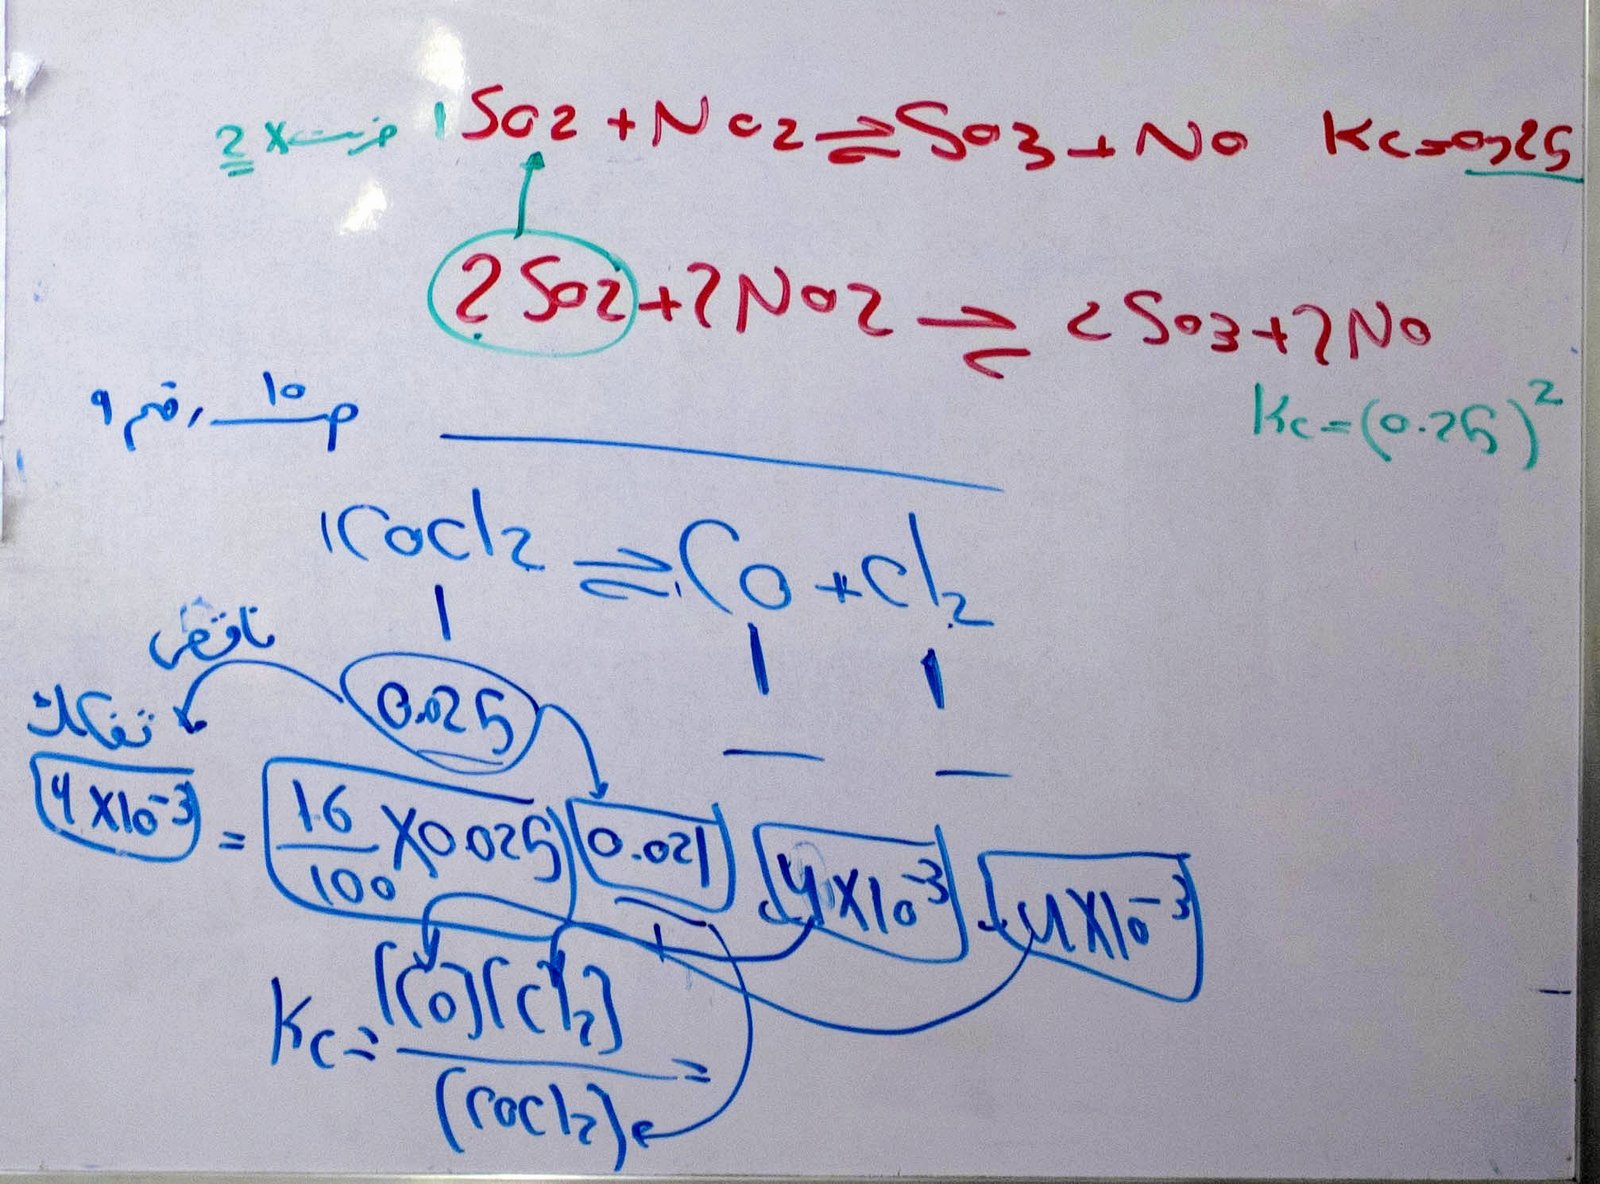 2 × ضربت 1 So2 + No2 ⇌ So3 + No Kc = 0.25
2 So2 + 2 No2 ⇌ 2 So3 + 2 No
Kc = (0.25)²
10
1 CoCl2 ⇌ Co + Cl2
ناقص
0.025
تفكك
4 × 10⁻³ = 16/100 × 0.025 0.021 4 × 10⁻³ 4 × 10⁻³
Kc = [Co][Cl2] / [CoCl2] =